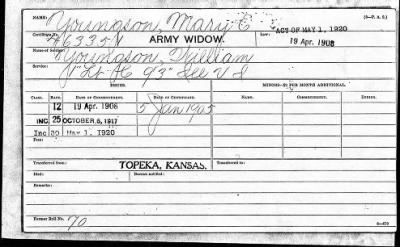 NAME: Youngson, Mary E (3—P. & S.)
ACT OF MAY 1, 1920
Certificate No. 463351 ARMY WIDOW. 19 Apr. 1908
Name of Soldier: Youngson, William
Service:
ISSUES. MINORS—$2 PER MONTH ADDITIONAL.
CLASS. RATE. DATE OF COMMENCEMENT. DATE OF CERTIFICATE. NAME. COMMENCEMENT. ENDING.
12 19 Apr. 1908 5 Jan 1905
INC. 25 OCTOBER 6, 1917
Inc 30 May 1, 1920
Transferred from: TOPEKA, KANSAS. Transferred to:
Died: Bureau notified:
Remarks:
Former Roll No. 70
6—470